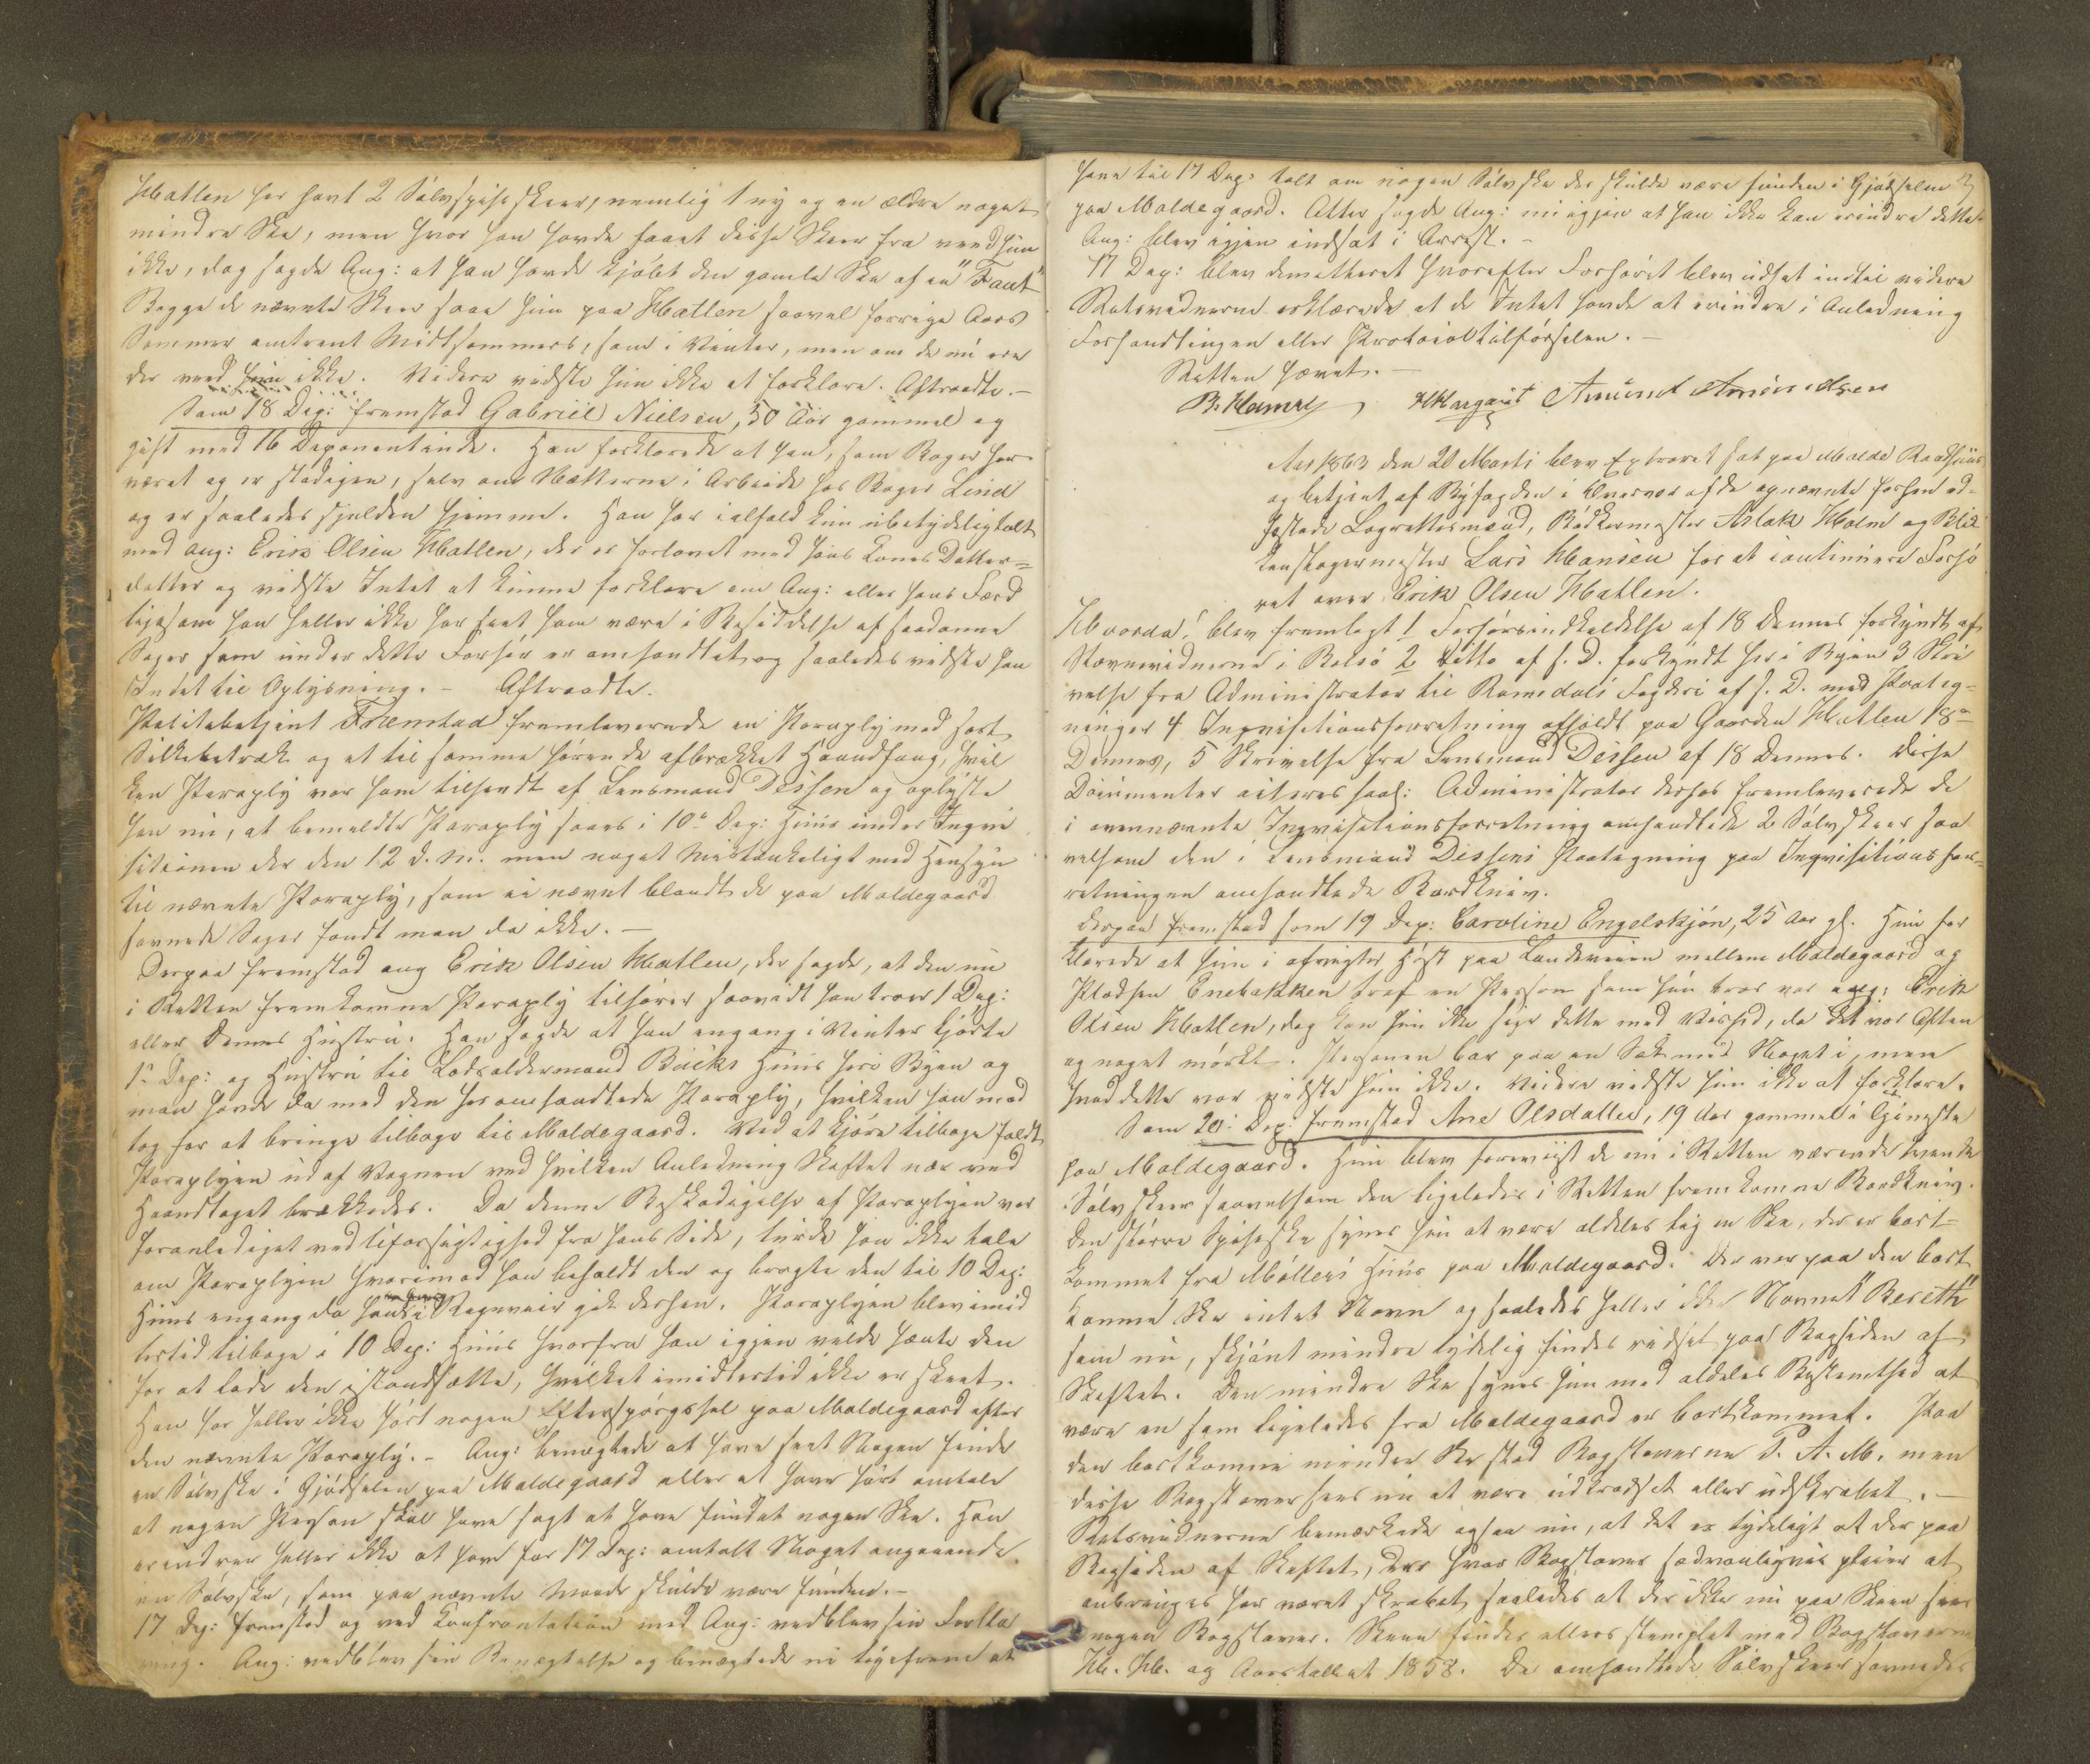 Hatlen har havt 2 Sølvspiseskeer, nemlig 1 ny og en ældre noget
mindre Ske, men hvor han havde faaet disse Skeer fra veed hun
ikke, dog sagde Ang: at han havde kjøbt den gamle Ske af en "Fant"
Begge de nævnte Skeer saae hun paa Hatlen saavel forrige Aars
Sommer omtrent Midtsommers, som i Vinter, men om de nu ere
der veed hun ikke. Videre vidste hun ikke at forklare. Aftraadte.-
Som 18 Dep: fremstod Gabriel Nielsen, 50 Aar gammel og
gift med 16 Deponentinde. Han forklarede at han, som Bager har
været og er stadigen, selv om Nætterne i Arbeide hos Bager Lind
og er saaledes sjelden hjemme. Han har ialfald kun ubetydeligt talt
med Ang: Erik Olsen Hatlen, der er forlovet med hans Kones Datter=
datter og vidste Intet at kunne forklare om Ang: eller hans Færd
ligesom han heller ikke har seet ham være i Besiddelse af saadanne
Sager som under dette Forhør er omhandlet og saaledes vidste han
Intet til Oplysning. - Aftraadte.
Politibetjent Fremstad fremleverede en Paraply med sort
Silkebetræk og et til samme hørende afbrækket Haandfang, hvil
ken Paraply var ham tilsendt af Lensmand Dessen og oplyste
han nu, at bemeldte Paraply saaes i 10de Dep: Huus under Inqvi
sitionen der den 12 d. M. men noget Mistænkeligt med Hensyn
til nævnte Paraply, som ei nævnt blandt de paa Moldegaard
savnede Sager fandt man da ikke. -
Derpaa fremstod Ang Erik Olsen Hatlen, der sagde, at den nu
i Retten fremkomne Paraply tilhører saavidt han troer 1 Dep:
eller Dennes Hustru. Han sagde at han engang i Vinter kjørte
1ste Dep: og Hustru til Lodsoldermand Bäcks Huus her i Byen og
man havde da med den her omhandlede Paraply, hvilken han med
tog for at bringe tilbage til Moldegaard. Ved at kjøre tilbage faldt
Paraplyen ud af Vognen ved hvilken Anledning Skaftet nær ved
Haandtaget brækkedes. Da denne Beskadigelse af Paraplyen var
foranlediget ved Uforsigtighed fra hans Side, turde han ikke tale
om Paraplyen hvorimod han beholdt den og bragte den til 10 Dep:
Huus engang da han i Regnveir gik derhen. Paraplyen blev imid
lertid tilbage i 10 Dep: Huus hvorfra han igjen vilde hente den
for at lade den istandsætte, hvilket imidlertid ikke er skeet.
Han har heller ikke hørt nogen Efterspørgsel paa Moldegaard efter
den nævnte Paraply. - Ang: benægtede at have seet Nogen finde
en Sølvske i Gjødselen paa Moldegaard eller at have hørt omtale
at nogen Person skal have sagt at have fundet nogen Ske. Han
erindrer heller ikke at have for 17 Dep: omtalt Noget angaaende
en Sølvske, som paa nævnte Maade skulde være funden.-
17 Dep: fremstod og ved Confrontation med Ang: vedblev sin Forkla
ring. Ang: vedblev sin Benægtelse og benægtede nu ligefrem at
have til 17 Dep: talt om nogen Sølvske der skulde være funden i Gjødselen
paa Moldegaard. Atter sagde Ang: nu igjen at han ikke kan erindre dette.
Ang: blev igjen indsat i Arrest. -
17 Dep: blev demitteret hvorefter Forhøret blev udsat indtil videre
Retsvidnerne erklærede at de Intet havde at erindre i Anledning
Forhandlingen eller Protocoltilførselen. -
Retten hævet. -
Amund Amundsen
Aar 1863 den 20 Marti blev Extraret sat paa Molde Raadhuus
og betjent af Byfogden i Overvær af de opnævnte forhen ed-
fæstede Lagrettesmænd, Bødkermester Aslak Holm og Blik
kenslagermester Lars Hansen for at continuere Forhø
ret over Erik Olsen Hatlen.
Hvorda! blev fremlagt 1 Forhørsindkaldelse af 18 Dennes forkyndt af
Stævnevidnerne i Bolsø 2 ditto af s. D. forkyndt her i Byen 3 Skri
velse fra Administrator til Romsdals Fogderi af s. D. med Paateg-
ninger 4 Inqvisitionsforretning afholdt paa Gaarden Hatlen 18de
Dennes, 5 Skrivelse fra Lensmand Dessen af 18 Dennes. Disse
Documenter citeres saal: Administrator derhos fremleverede de
i ovennævnte Inqvisitionsforretning omhandlede 2 Sølvskeer saa
velsom den i Lensmand Dessens Paategning paa Inqvisitionsfor=
retningen omhandlede Bordkniv.
Derpaa fremstod som 19 Dep: Caroline Engelskjøn, 25 Aar gl. Hun for
klarede at hun i afvigte Høst paa Landeveien mellem Moldegaard og
Pladsen Enebakken traf en Person som hun troer var Ang: Erik
Olsen Hatlen, dog kan hun ikke sige dette med Vished, da det var Aften
og noget mørkt. Personen bar paa en Sæk med Noget i, men
hvad dette var vidste hun ikke. Videre vidste hun ikke at forklare.
Som 20: Dep: fremstod Ane Olsdatter, 19 Aar gammel i Tjeneste
paa Moldegaard. Hun blev foreviist de nu i Retten værende tvende
Sølvskeer saavelsom den ligeledes i Retten fremkomne Bordkniv.
Den større Spiseske synes hun at være aldeles lig en Ske, der er bort-
kommet fra Møllers Huus paa Moldegaard. Der var paa den bort
komne Ske intet Navn og saaledes heller ikke Navnet "Bereth"
som nu, skjønt mindre tydelig findes ridset paa Bagsiden af
Skaftet. Den mindre Ske synes hun med aldeles Bestemthed at
være en som ligeledes fra Moldegaard er bortkommet. Paa
den bortkomne mindre Ske stod Bogstaverne P. A. M. men
disse Bogstaver sees nu at være udkradset eller udskrabet. -
Retsvidnerne bemærkede ogsaa nu, at det er tydeligt at der paa
Bagsiden af Skaftet, der hvor Bogstaver sædvanligviis pleier at
anbringes har været skrabet saaledes at der ikke nu paa Skeen sees
nogen Bogstaver. Skeen findes ellers stemplet med Bogstaverne
H. H. og Aarstallet 1858. De omhandlede Sølvskeer savnedes